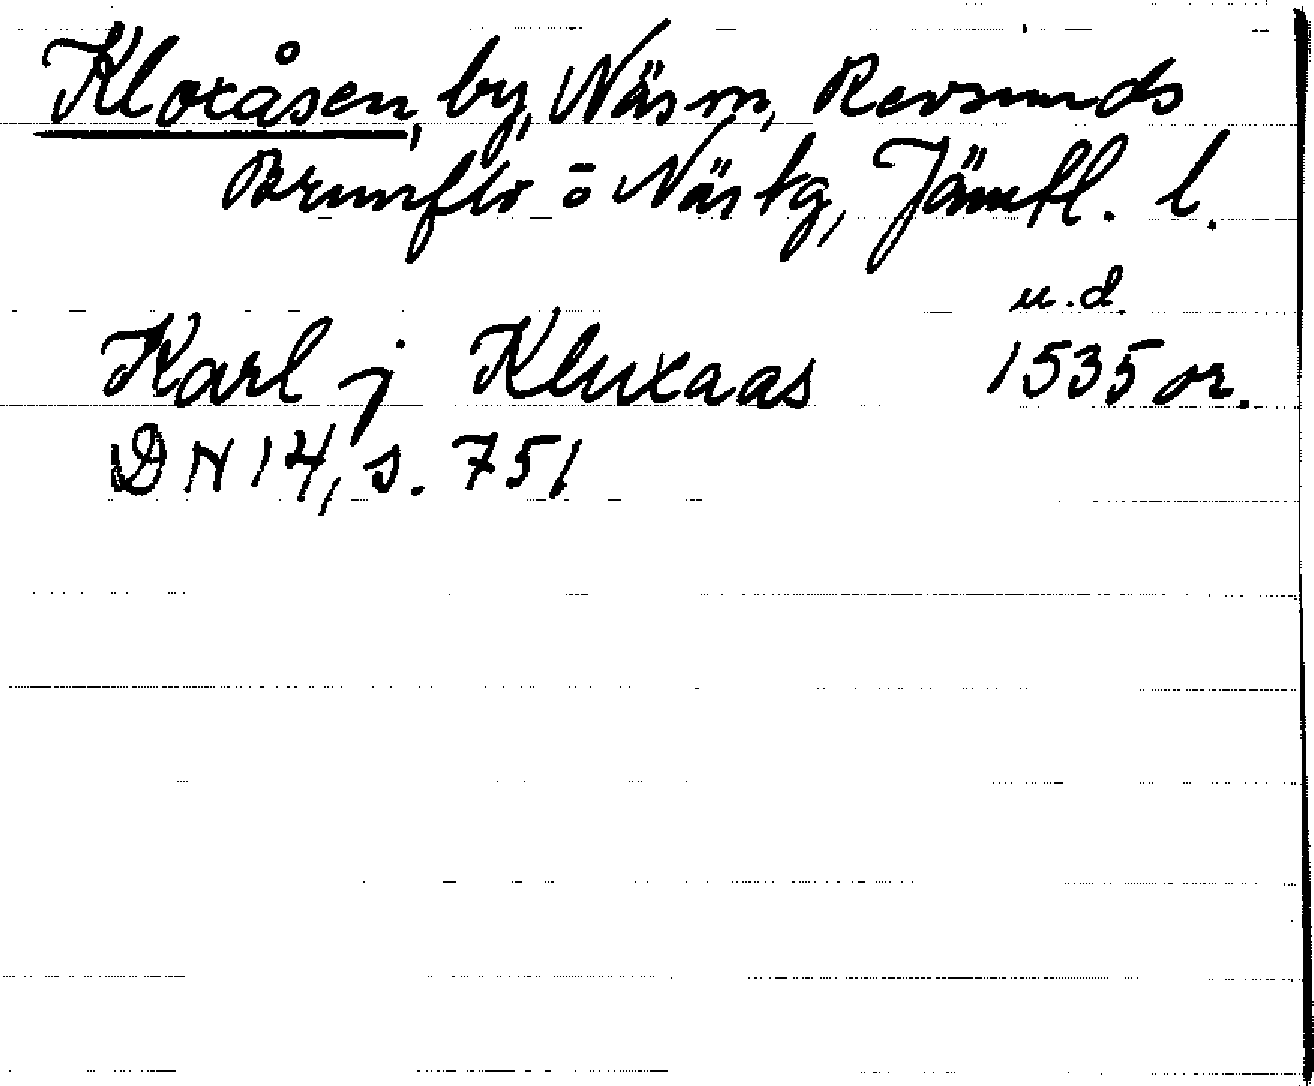 Kloxåsen, by, Näs sn, Revsunds
Brunflo o Näs tg, Jämtl. l.
u.d.
Karl j Kluxaas 1535 or.
DN 14, s. 751